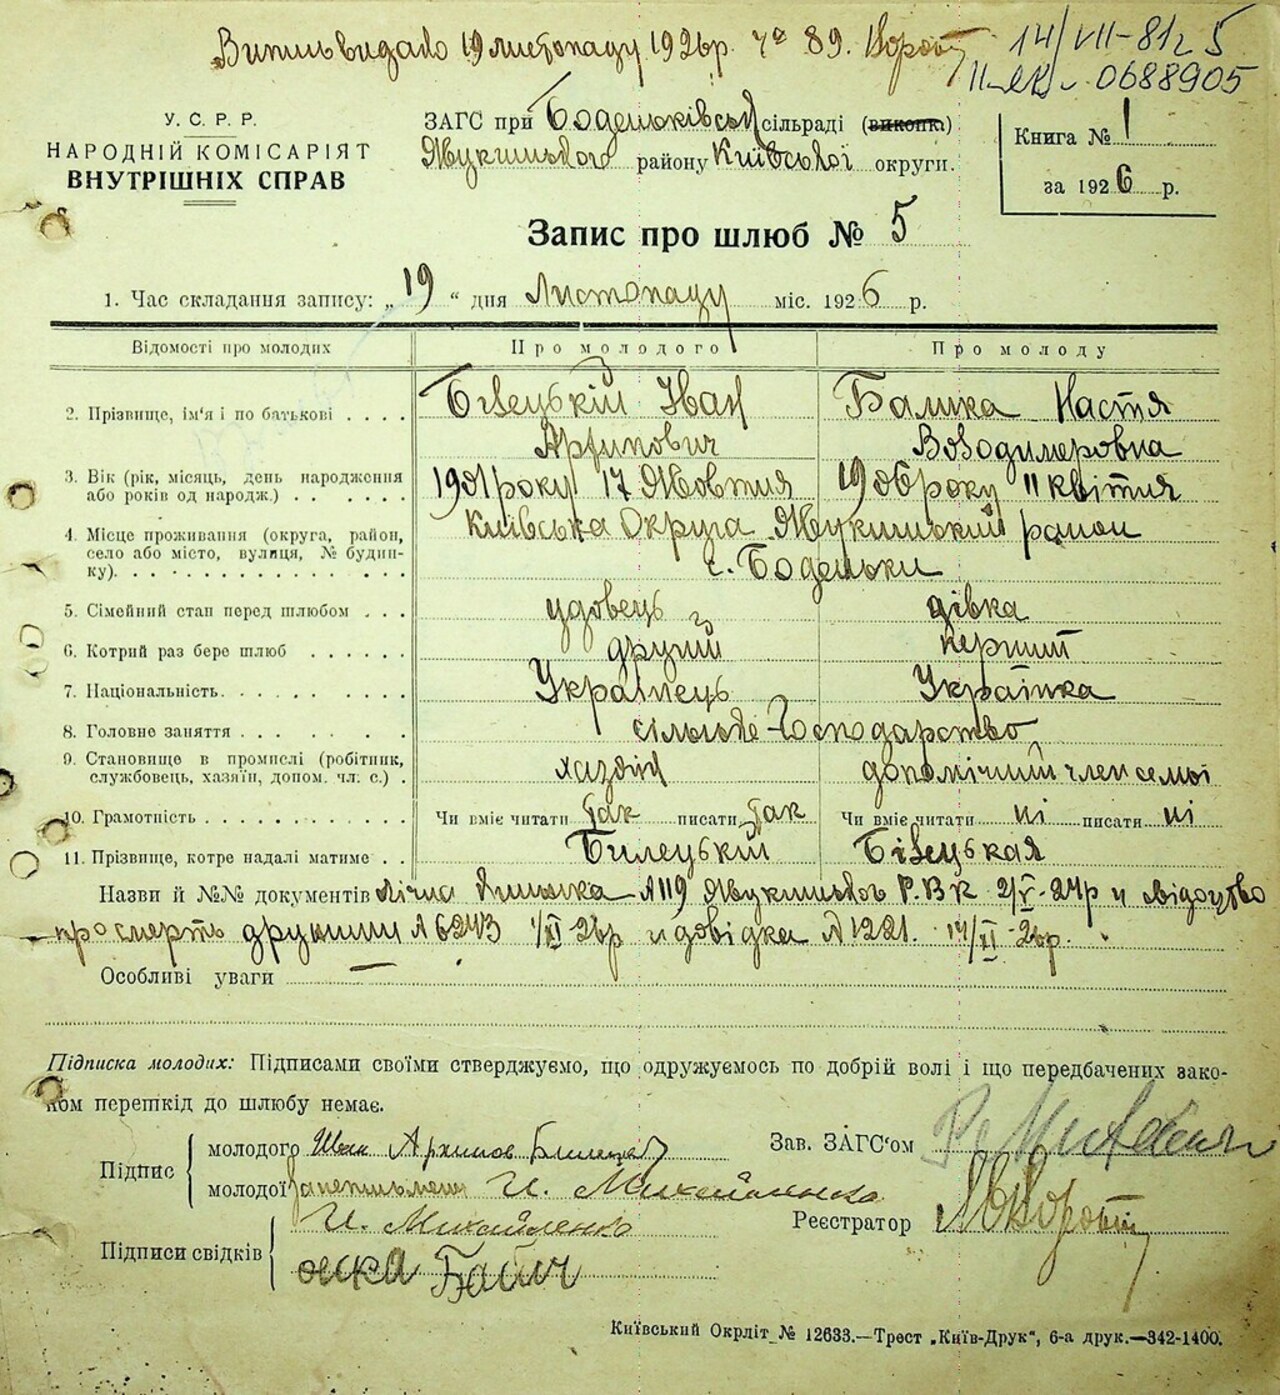 Витяг видано 19 листопаду 1926р. ча 89.
14/VII-81г 5
0688905
У. С. Р. Р.
НАРОДНІЙ КОМІСАРІЯТ
ВНУТРІШНІХ СПРАВ
ЗАГС при Боденьківській сільраді (викопк.)
району Київської округи.
Книга № 1
за 1926 р.
Запис про шлюб № 5
1. Час складання запису: „19“ дня Листопаду міс. 1926 р.
Відомості про молодих Про молодого Про молоду
2. Прізвище, ім'я і по батькові . . . . Білецькій Іван Балика Настя
Архипович Володимеровна
3. Вік (рік, місяць, день народження 1901 року 17 Жовтня 1906 року 11 квітня
або років од народж.) . . . . . .
4. Місце проживання (округа, район, Київська Округа район
село або місто, вулиця, № будин- с. Боденьки
ку). . . . . . . . . . . . . . .
5. Сімейний стан перед шлюбом . . . удовець дівка
6. Котрий раз бере шлюб . . . . . . другий перший
7. Національність. . . . . . . . . . Українець Українка
8. Головне заняття . . . . . . . . сільське-господарство
9. Становище в промислі (робітник, хазяїн допомічний член семьї
службовець, хазяїн, допом. чл. с.) .
10. Грамотність . . . . . . . . . . . . Чи вміє читати так писати так Чи вміє читати ні писати ні
11. Прізвище, котре надалі матиме . . Билецькій Білецькая
Назви й №№ документів №119 Р.В.К. 2/V-24р и свідоцтво
про смерть дружини № 6243 1/XI 26р и довідка № 1221. 14/XI-26р.
Особливі уваги —
Підписка молодих: Підписами своїми стверджуємо, що одружуємось по добрій волі і що передбачених зако-
ном перешкід до шлюбу немає.
Підпис
молодого Иван Архипов Билецкий
молодої И. Михайленко
Зав. ЗАГС'ом
Підписи свідків
И. Михайленко
Бабич
Реєстратор
Київський Окрліт № 12633.—Трест „Київ-Друк“, 6-а друк.—342-1400.